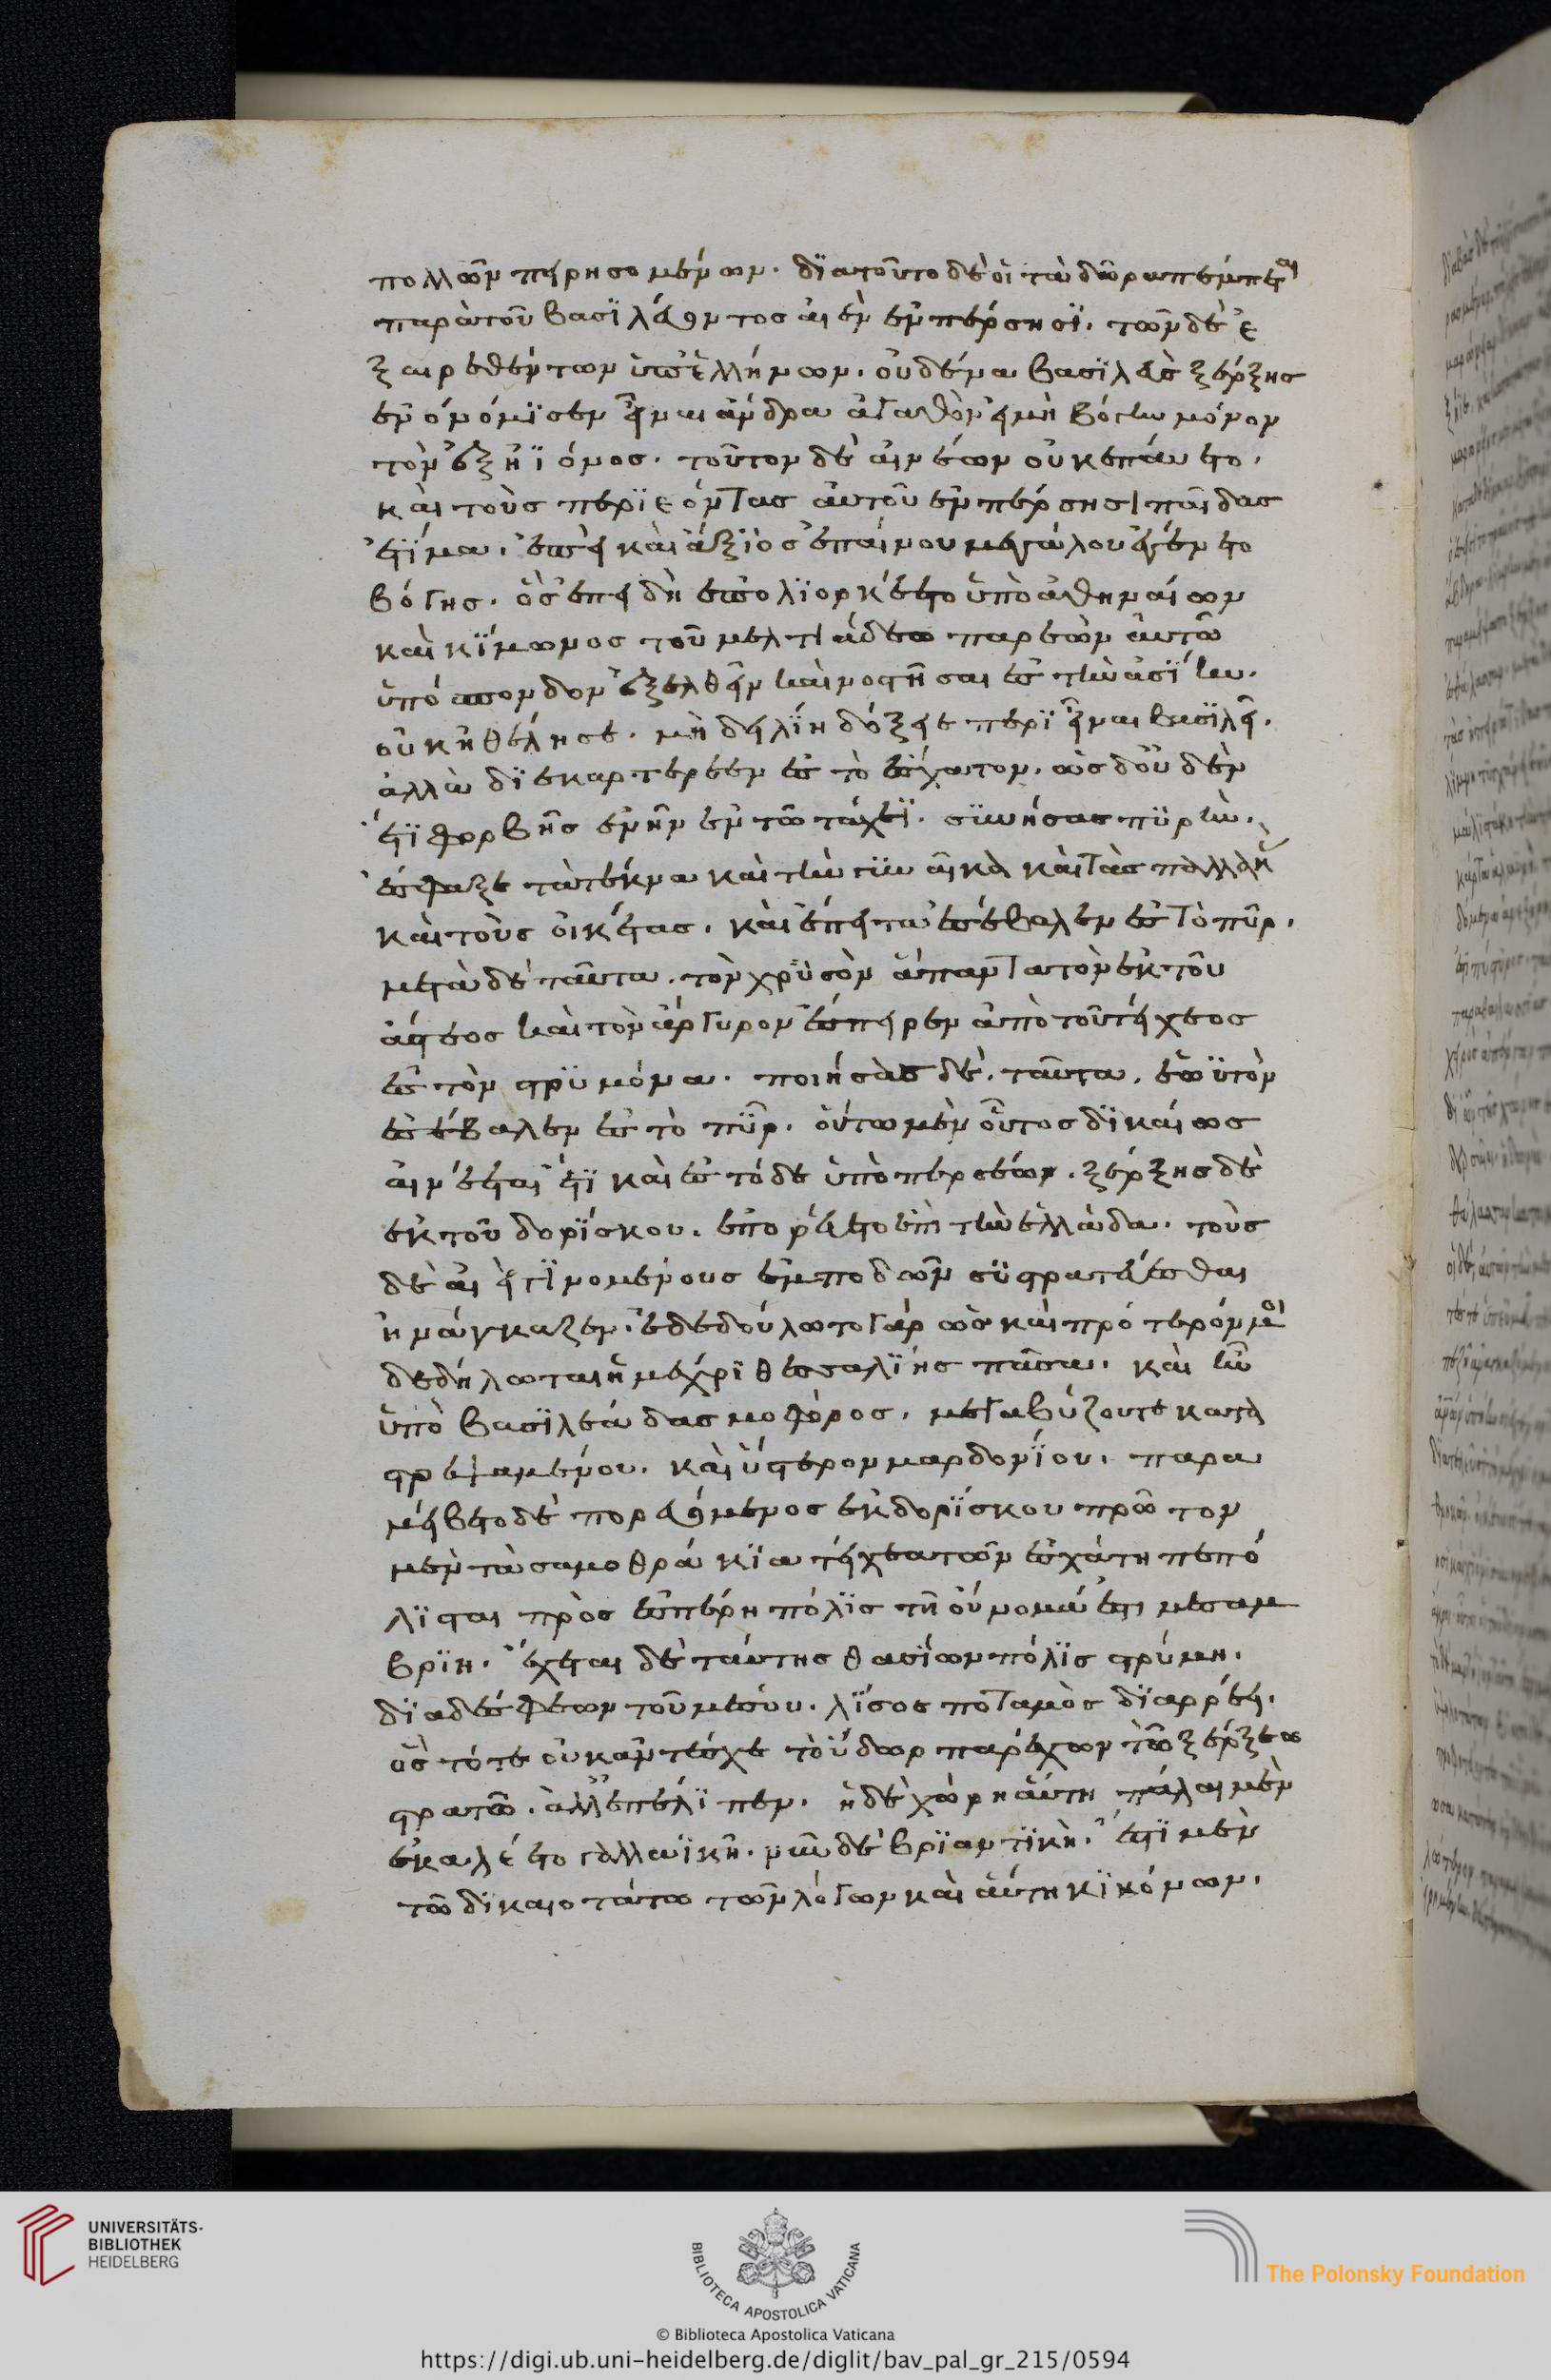 πολλῶν πειρησομένων. διατοῦτο δὲ οἱ τὰ δῶρα πέμπεται
παρὰ τοῦ βασιλεύοντος αἰὲν ἐν πέρσησι. τῶν δὲ ἐ
ξαιρεθέντων ὑπ' ἑλλήνων. οὐδένα βασιλεὺς ξέρξης
ἐνόμισεν εἶναι ἄνδρα ἀγαθὸν εἰμὴ βόγην μόνον
τὸν ἐξ ἠϊόνος. τοῦτον δὲ αἰνέων οὐκ ἐπαύετο.
καὶ τοὺς περιεόντας αὐτοῦ ἐν πέρσησι παῖδας
ἐτίμα. ἐπεὶ καὶ ἄξιος ἐπαίνου μεγάλου ἐγένετο
βόγης. ὃς ἐπειδὴ ἐπολιορκέετο ὑπὸ ἀθηναίων
καὶ κίμωνος τοῦ μελτιάδεω παρεὸν αὐτῶ
ὑπόσπονδον ἐξελθεῖν καὶ νοστῆσαι ἐς τὴν ἀσίην.
οὐκ ἠθέλησε. μὴ δειλίη δόξειε περιεῖναι βασιλεῖ.
ἀλλὰ διεκαρτέρεεν ἐς τὸ ἔσχατον. ὡς δ' οὐδὲν
ἔτι φορβῆς ἐνῆν ἐν τῶ τείχεϊ. συννήσας πυρὴν.
ἔσφαξε τὰ τέκνα καὶ τὴν γυναῖκα καὶ τὰς παλλακὰς
καὶ τοὺς οἰκέτας. καὶ ἔπειτα ἐσέβαλεν ἐς τὸ πῦρ.
μετὰ δὲ ταῦτα. τὸν χρυσὸν ἅπαντα τὸν ἐκ τοῦ
ἄστεος καὶ τὸν ἄργυρον ἔσπειρεν ἀπὸ τοῦ τείχεος
ἐς τὸν στρυμόνα. ποιήσας δὲ. ταῦτα. ἑωυτὸν
ἐσέβαλεν ἐς τὸ πῦρ. οὕτω μὲν οὗτος δικαίως
αἰνέεται ἔτι καὶ ἐς τόδε ὑπὸ περσέων. ξέρξης δὲ
ἐκ τοῦ δορίσκου. ἐπορεύετο ἐπὶ τὴν ἑλλάδα. τοὺς
δὲ αἰεὶ γινομένους ἐμποδὼν συστρατεύεσθαι
ἠνάγκαζεν. ἐδεδούλωτο γάρ ὡς καὶ πρότερόν μοι
δεδήλωται ἡ μέχρι θεσσαλίης πᾶσα. καὶ ἦν
ὑπὸ βασιλέα δασμοφόρος. μεγαβύζου τε κατα
στρεψαμένου. καὶ ὕστερον μαρδονίου. παρα
μείβετο δὲ πορευόμενος ἐκ δορίσκου πρῶτον
μὲν τὰ σαμοθράκια τείχεα τῶν ἐσχάτη πεπό
λισται πρὸς ἑσπέρη πόλις τῆ οὔνομά ἐστι μεσαμ
βρίη. ἔχεται δὲ ταύτης θασίων πόλις στρύμη.
διαδέ σφέων τοῦ μέσου. λίσος ποταμὸς διαρρέει.
ὃς τότε οὐκ ἀντέσχε τὸ ὕδωρ παρέχων τῶ ξέρξεω
στρατῶ. ἀλλ' ἐπέλιπεν. ἡ δὲ χώρη αὕτη πάλαι μὲν
ἐκαλέετο γαλλαϊκὴ. νῦν δὲ βριαντικὴ. ἔστι μὲν
τῶ δικαιοτάτω τῶν λόγων καὶ αὕτη κικόνων.
UNIVERSITÄTS-
BIBLIOTHEK
HEIDELBERG
BIBLIOTECA APOSTOLICA VATICANA
The Polonsky Foundation
© Biblioteca Apostolica Vaticana
https://digi.ub.uni-heidelberg.de/diglit/bav_pal_gr_215/0594